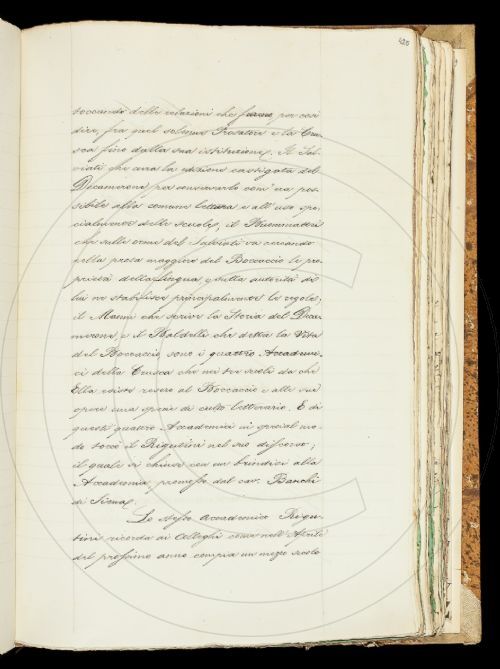 428
toccando delle relazioni che furono per così
dire, fra quel solenne Prosatore e la Cru-
sca fino dalla sua istituzione. Il Sal-
viati che cura la edizione castigata del
Decamerone per conservarlo com'era pos-
sibile alla comune lettura e all'uso spe-
cialmente delle scuole, il Buommattei
che sulle orme del Salviati va cercando
nella prosa maggiore del Boccaccio le pro-
prietà della Lingua e sulla autorità di
lui ne stabilisce principalmente le regole;
il Manni che scrive la Storia del Deca-
merone, e il Baldelli che detta la Vita
del Boccaccio, sono i quattro Accademi-
ci della Crusca che nei tre secoli da che
Ella esiste resero al Boccaccio e alle sue
opere una specie di culto letterario. E di
questi quattro Accademici in special mo-
do toccò il Rigutini nel suo discorso;
il quale si chiuse con un brindisi alla
Accademia, promosso dal cav. Banchi
di Siena.
Lo stesso Accademico Rigu-
tini ricorda ai Colleghi come nell'Aprile
del prossimo anno compia un mezzo secolo